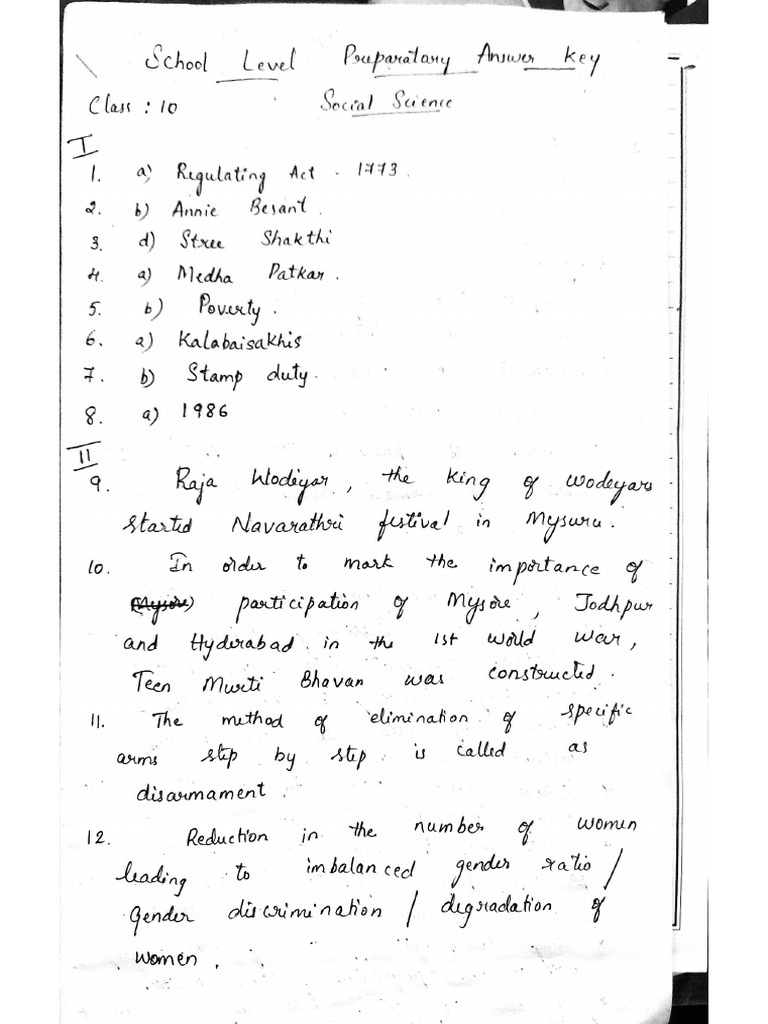 School Level Preparatory Answer Key
Class : 10 Social Science
I
1. a) Regulating Act - 1773.
2. b) Annie Besant.
3. d) Stree Shakthi
4. a) Medha Patkar.
5. b) Poverty.
6. a) Kalabaisakhis
7. b) Stamp duty.
8. a) 1986
II
9. Raja Wodeyar, the king of wodeyars
started Navarathri festival in Mysuru.
10. In order to mark the importance of
(Mysore) participation of Mysore, Jodhpur
and Hyderabad in the 1st world war,
Teen Murti Bhavan was constructed.
11. The method of elimination of specific
arms step by step is called as
disarmament.
12. Reduction in the number of women
leading to imbalanced gender ratio /
Gender discrimination / degradation of
women.